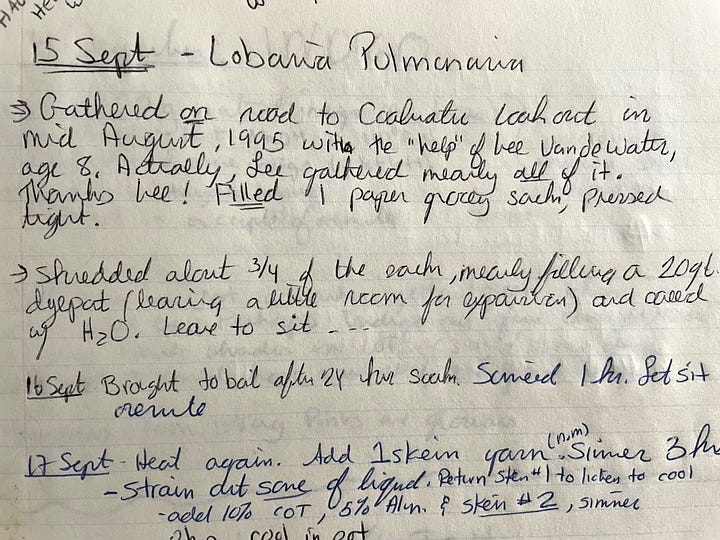 15 Sept - Lobaria Pulmonaria
→ Gathered on road to Coalwater lookout in
mid August, 1995 with the "help" of Lee Vande Water,
age 8. Actually, Lee gathered nearly all of it.
Thanks Lee! Filled 1 paper grocery sack, pressed
tight.
→ Shredded about 3/4 of the sack, nearly filling a 20qt.
dyepot (leaving a little room for expansion) and
w/ H2O. Leave to sit ----
16 Sept Brought to boil after 24 hr soak. Simmered 1 hr. Let sit
17 Sept - Heat again. Add 1 skein yarn (n,m). Simmer 3 h
- Strain out some of liquid. Return Skein #1 to to cool
- add 10% COT, 5% Alm. & Skein #2, simmer
cool in pot